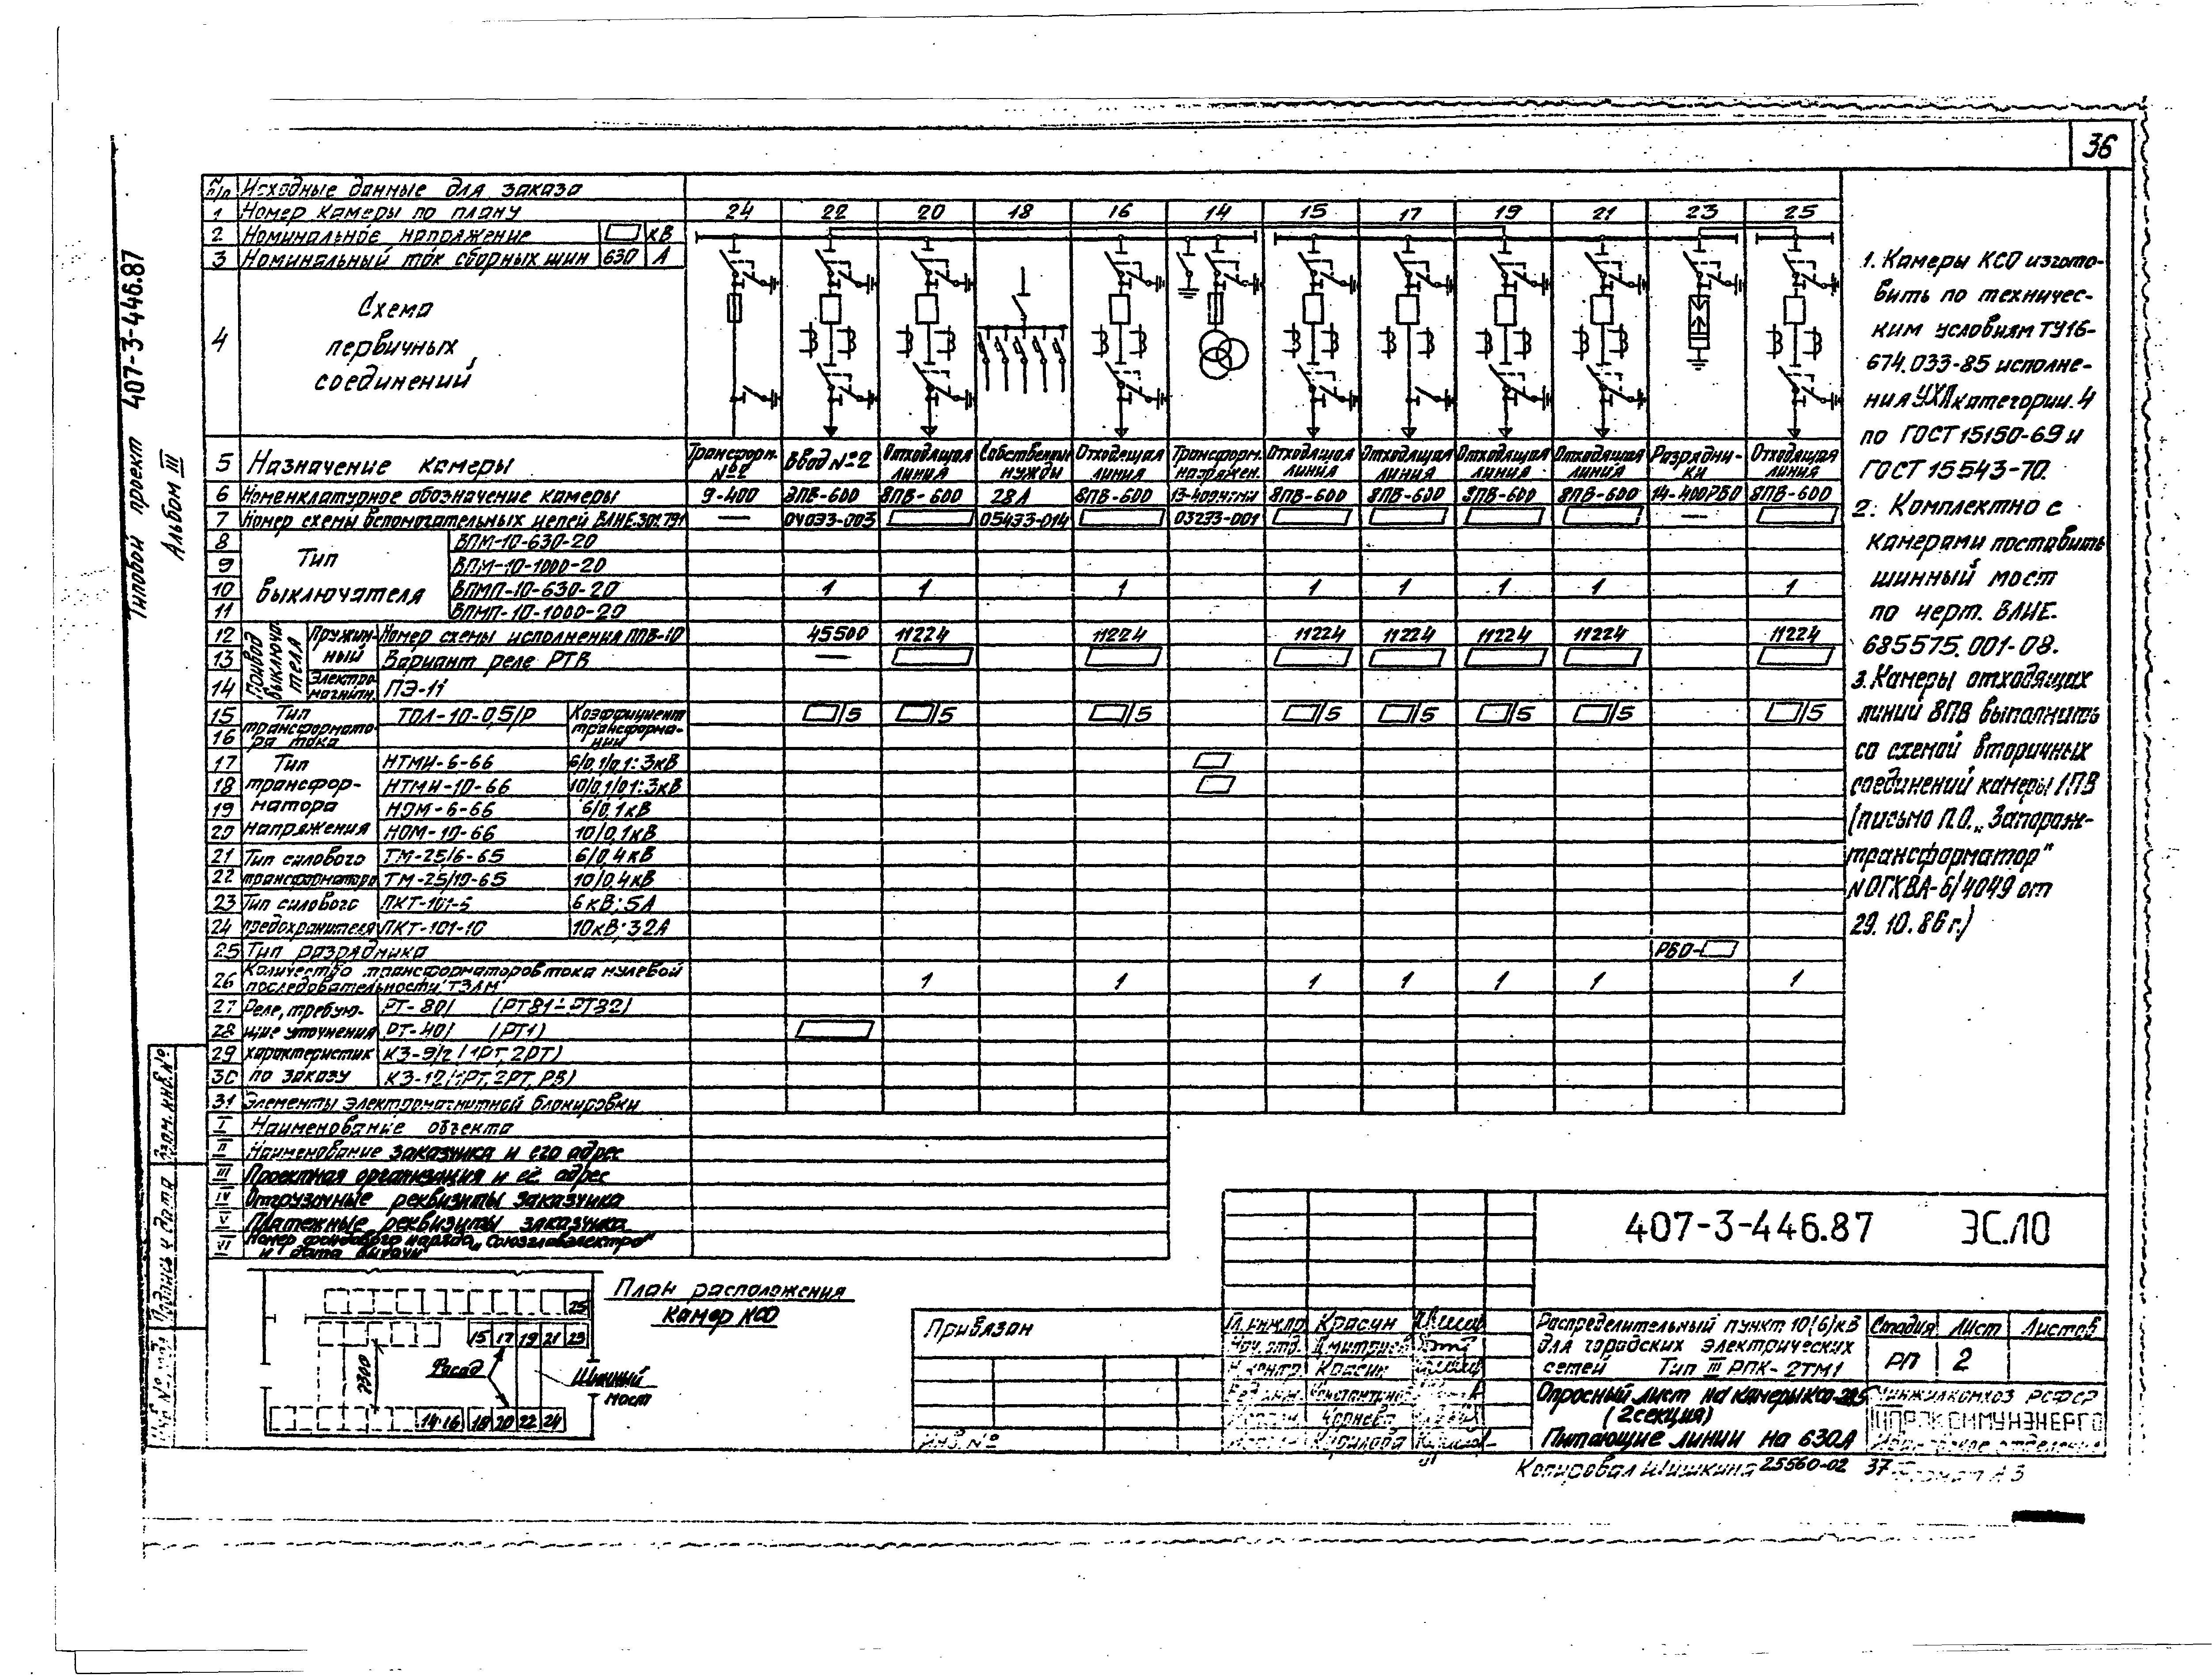 36
Типовой проект 407-3-446.87
Альбом III
№ п/п Исходные данные для заказа
1 Номер камеры по плану 24 22 20 18 16 14 15 17 19 21 23 25
2 Номинальное напряжение кВ
3 Номинальный ток сборных шин 630 А
4 Схема первичных соединений
5 Назначение камеры Трансформ. №2 Ввод №2 Отходящая линия Собственные нужды Отходящая линия Трансформ. напряжен. Отходящая линия Отходящая линия Отходящая линия Отходящая линия Разрядники Отходящая линия
6 Номенклатурное обозначение камеры 9-400 8ПВ-600 28А 8ПВ-600 8ПВ-600 8ПВ-600 8ПВ-600 8ПВ-600 14-400РВО 8ПВ-600
7 Номер схемы вспомогательных цепей ВЛИЕ.301.791 — 04033-003 05433-014 03233-001 —
8 Тип выключателя ВПМ-10-630-20
9 ВПМ-10-1000-20
10 ВПМП-10-630-20 1 1 1 1 1 1 1 1
11 ВПМП-10-1000-20
Привод выключателя
12 Пружинный Номер схемы исполнения ППВ-10 45500 11224 11224 11224 11224 11224 11224 11224
13 Вариант реле РТВ —
14 Электромагнитн. ПЭ-11
15 Тип трансформатора тока ТОЛ-10-0,5/Р Коэффициент трансформации /5 /5 /5 /5 /5 /5 /5 /5
16
17 Тип трансформатора напряжения НТМИ-6-66 6/0,1/0,1:3кВ
18 НТМИ-10-66 10/0,1/0,1:3кВ
19 НОМ-6-66 6/0,1кВ
20 НОМ-10-66 10/0,1кВ
21 Тип силового трансформатора ТМ-25/6-65 6/0,4кВ
22 ТМ-25/10-65 10/0,4кВ
23 Тип силового предохранителя ПКТ-101-6 6кВ;5А
24 ПКТ-101-10 10кВ;3,2А
25 Тип разрядника РВО-
26 Количество трансформаторов тока нулевой последовательности "ТЗЛМ" 1 1 1 1 1 1 1
27 Реле, требующие уточнения характеристик по заказу РТ-80/ (РТ81÷РТ82)
28 РТ-40/ (РТ1)
29 КЗ-9/2 (1РТ,2РТ)
30 КЗ-12 (1РТ,2РТ,РВ)
31 Элементы электромагнитной блокировки
I Наименование объекта
II Наименование заказчика и его адрес
III Проектная организация и её адрес
IV Отгрузочные реквизиты заказчика
V Платежные реквизиты заказчика
VI Номер фондового наряда „Союзглавэлектро" и дата выдачи
1. Камеры КСО изгото-
вить по техничес-
ким условиям ТУ16-
674.033-85 исполне-
ния УХЛ категории 4
по ГОСТ 15150-69 и
ГОСТ 15543-70.
2. Комплектно с
камерами поставить
шинный мост
по черт. ВЛИЕ.
685575.001-08.
3. Камеры отходящих
линий 8ПВ выполнить
со схемой вторичных
соединений камеры 1ПВ
(письмо П.О. „Запорож-
трансформатор"
№ОГКВА-6/4049 от
29.10.86 г.)
План расположения
камер КСО
25
15 17 19 21 23
2300
Фасад
Шинный
мост
14 16 18 20 22 24
Привязан
Инв. №
407-3-446.87 ЭС.ЛО
Гл.инж.пр Красин
Нач. отд. Дмитриев
Н.контр. Красин
Чернева
Кирилова
Распределительный пункт 10(6)кВ
для городских электрических
сетей Тип III РПК-2ТМ1
Стадия Лист Листов
РП 2
Опросный лист на камеры КСО-285
(2 секция)
Питающие линии на 630А
Минжилкомхоз РСФСР
ГИПРОКОММУНЭНЕРГО
Ивановское отделение
Копировал Шишкина 25560-02 37 Формат А3
Взам. инв. №
Подпись и дата
Инв. № подл.